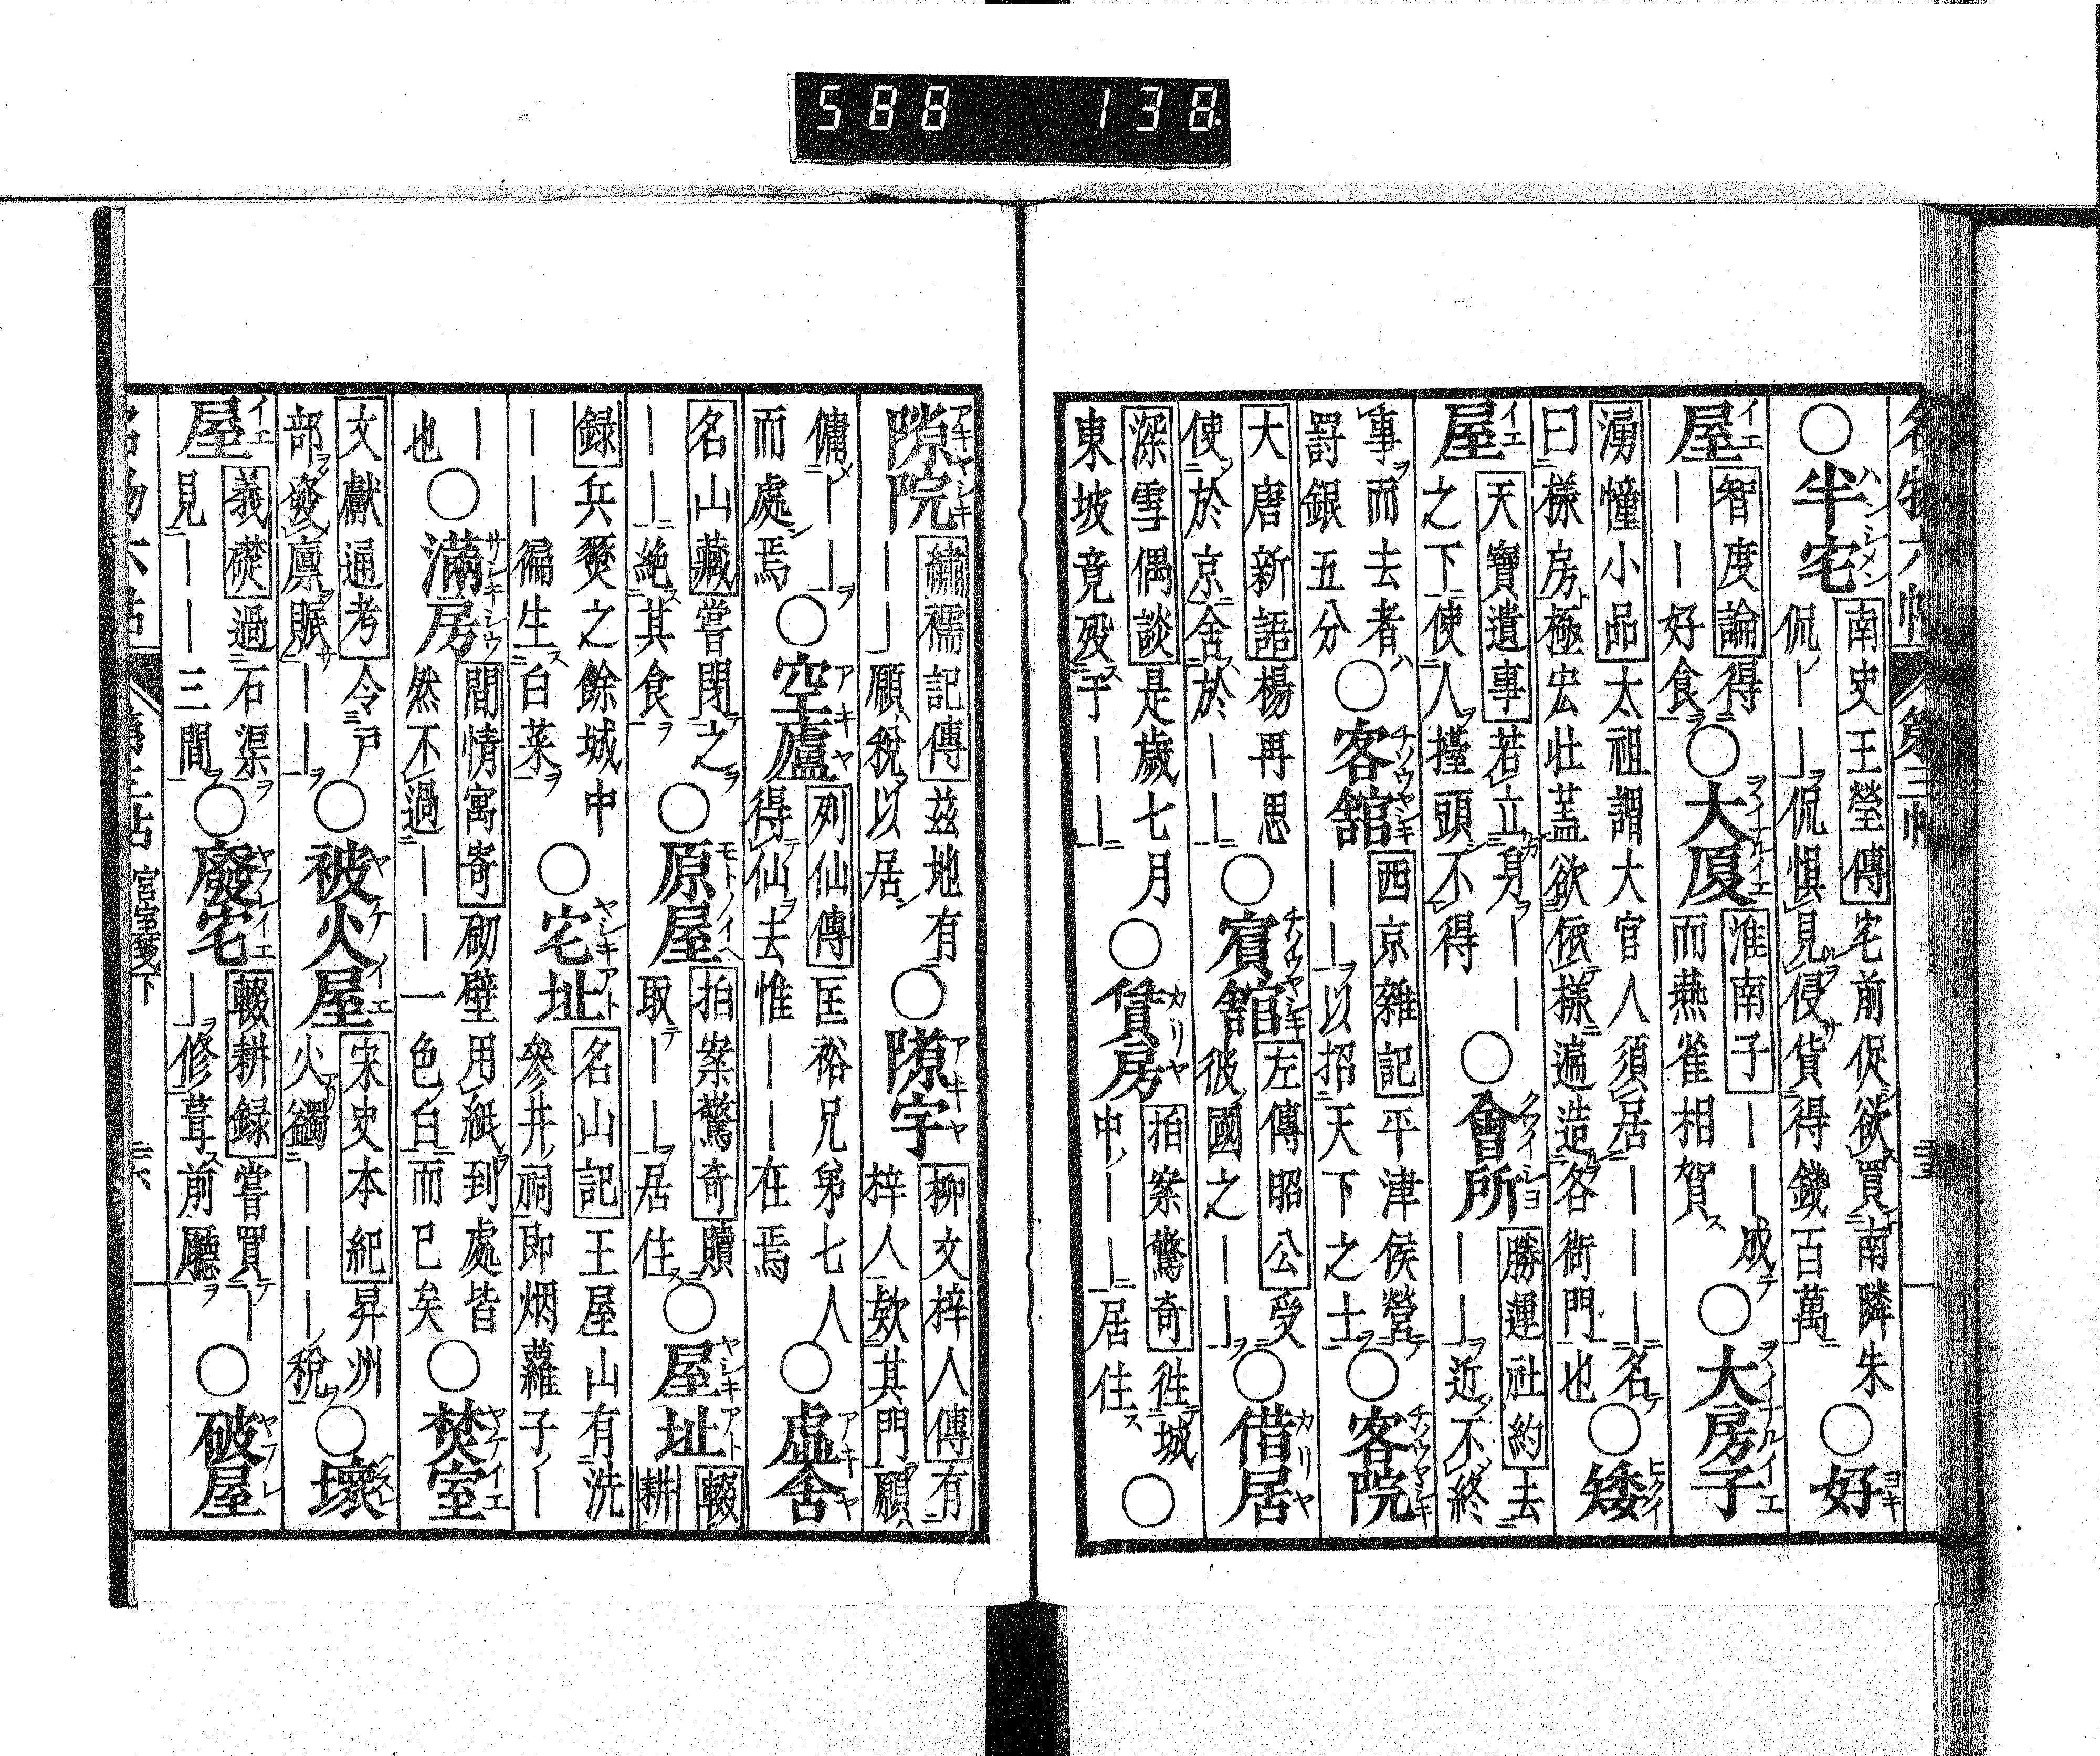 名物六帖 第三帖
○半宅 南史王瑩傳宅前促欲買南隣朱
侃――侃懼見侵貨得錢百萬 ○好
屋 智度論得
――好食 ○大厦 淮南子――成
而燕雀相賀 ○大房子
湧幢小品太祖謂大官人須居―――名
曰樣房極宏壯蓋欲依樣遍造各衙門也 ○矮
屋 天寶遺事若立身――
之下使人擡頭不得 ○會所 勝運社約去
――近不終
事而去者
罰銀五分 ○客館 西京雜記平津侯營
――以招天下之士 ○客院
大唐新語楊再思
使於京舍於―― ○賓館 左傳昭公受
彼國之―― ○借居
深雪偶談是歲七月
東坡竟歿于―― ○賃房 拍案驚奇往城
中――居住 ○
隙院 繡襦記傳茲地有
――願稅以居 ○隙宇 柳文梓人傳有
梓人欵其門願
傭――
而處焉 ○空廬 列仙傳匡裕兄弟七人
得仙去惟――在焉 ○虛舍
名山藏嘗閉之
――絶其食 ○原屋 拍案驚奇贖
取――居住 ○屋址 輟
耕
録兵燹之餘城中
――徧生白菜 ○宅址 名山記王屋山有洗
參井祠即烟蘿子―
―
也 ○滿房 間情寓寄砌壁用紙到處皆
然不過――一色白而已矣 ○焚室
文獻通考令戸
部發廩賑―― ○被火屋 宋史本紀昇州
火蠲―――税 ○壞
屋 義礎過石渠
見――三間 ○廢宅 輟耕録嘗買―
―修葺前廳 ○破屋
名物六帖 第三帖 宮室箋下
588 138